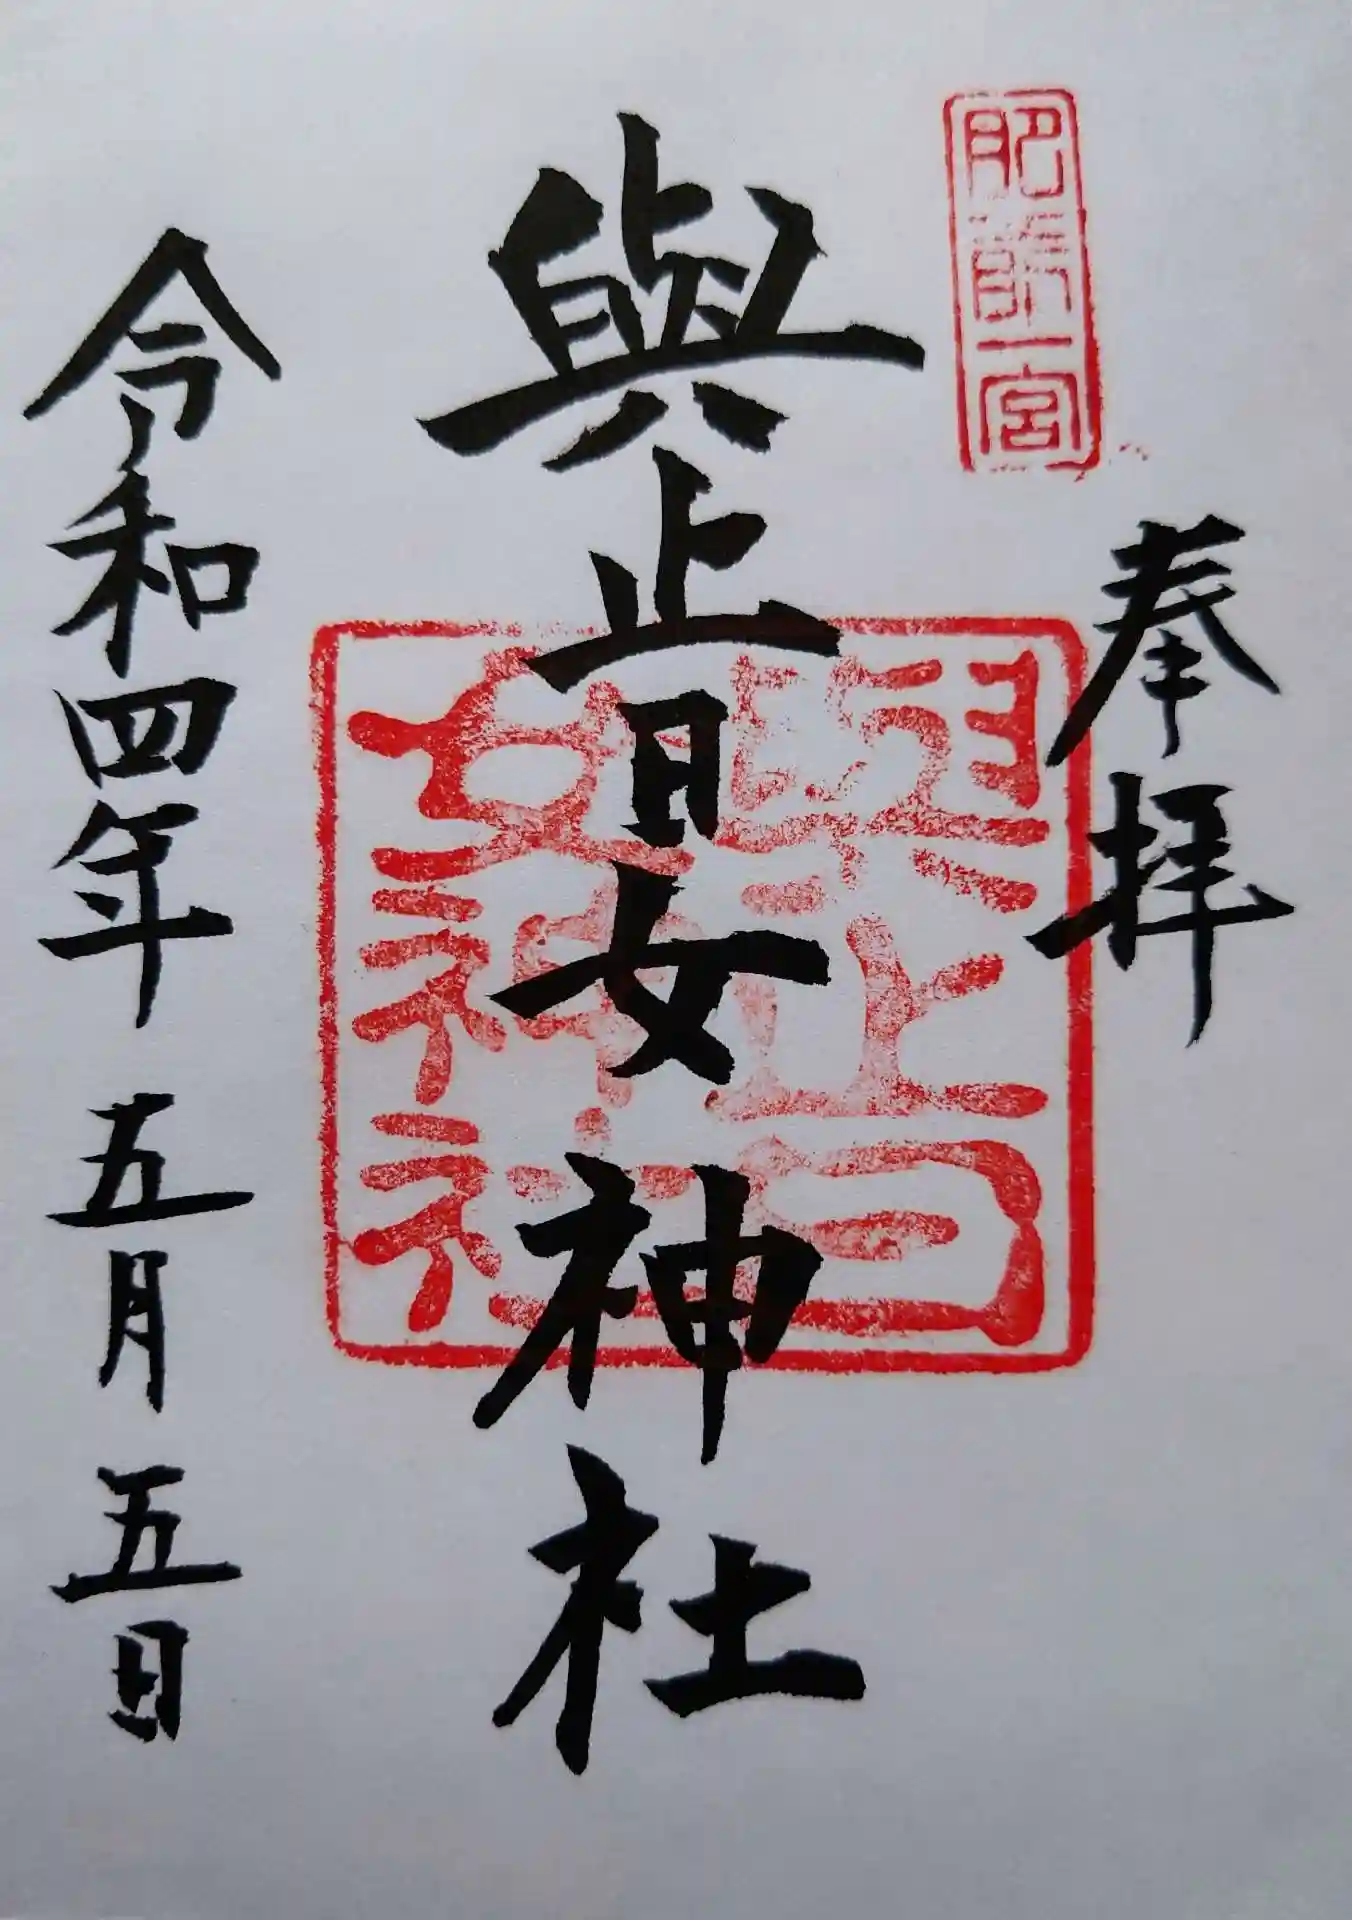 肥前一宮
奉拝
與止日女神社
與止日
女神社
令和四年五月五日